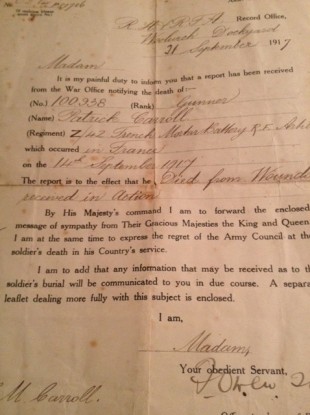 No.
R.H. & R.F.A. Record Office,
Woolwich Dockyard
21 September 1917
Madam
It is my painful duty to inform you that a report has been received
from the War Office notifying the death of:—
(No.) 100938 (Rank) Gunner
(Name) Patrick Carroll
(Regiment) Z/42 Trench Mortar Battery R.F. Arti
which occurred in France
on the 14th September 1917
The report is to the effect that he Died from Wounds
received in Action
By His Majesty's command I am to forward the enclosed
message of sympathy from Their Gracious Majesties the King and Queen
I am at the same time to express the regret of the Army Council at the
soldier's death in his Country's service.
I am to add that any information that may be received as to the
soldier's burial will be communicated to you in due course. A separa
leaflet dealing more fully with this subject is enclosed.
I am,
Madam,
Your obedient Servant,
M. Carroll.